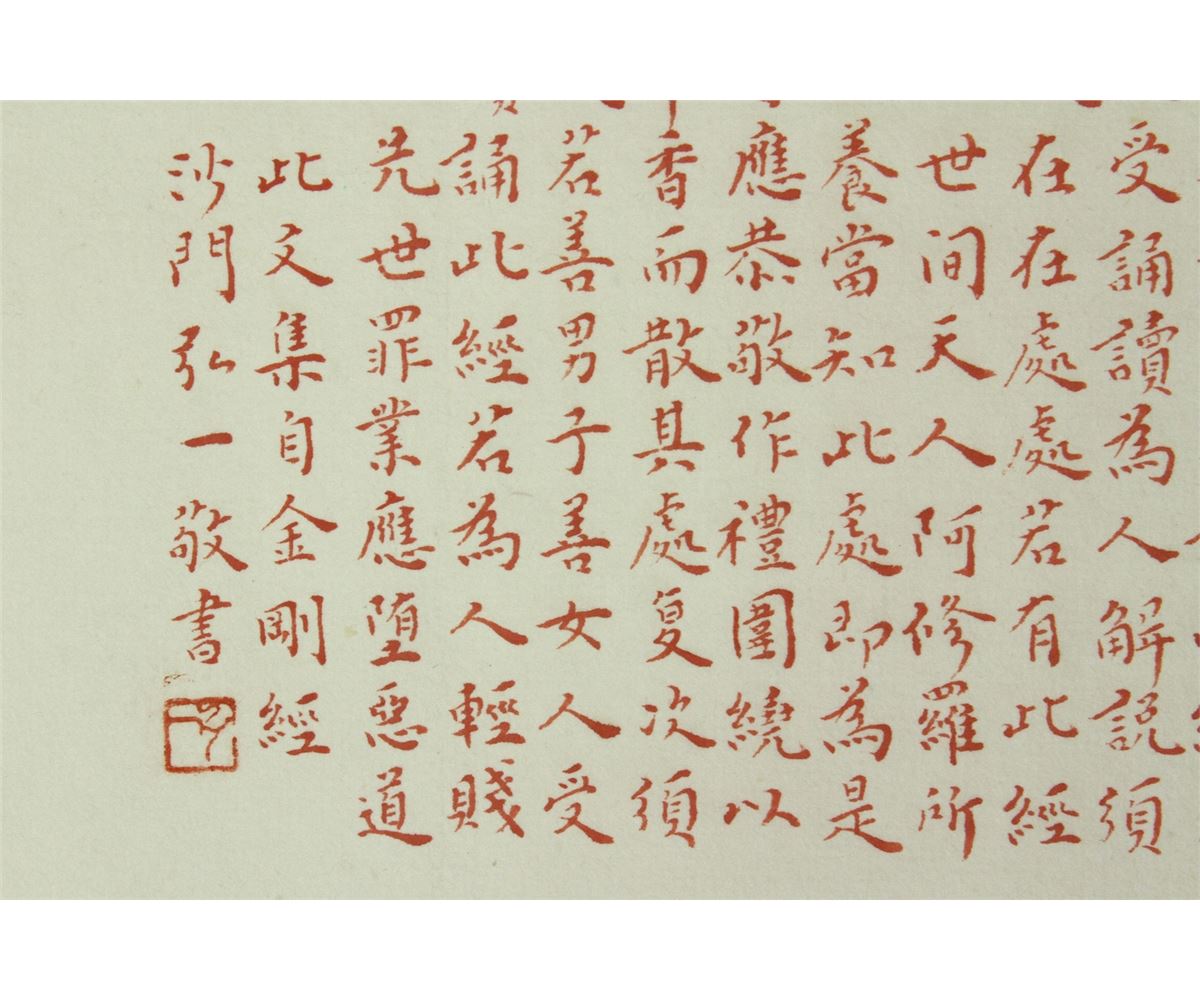 受誦讀為人解説須
在在處處若有此經
世间天人阿修羅所
養當知此處即為是
應恭敬作禮圍繞以
香而散其處复次須
若善男子善女人受
誦此經若為人輕賤
先世罪業應堕惡道
此文集自金剛經
沙門弘一敬書